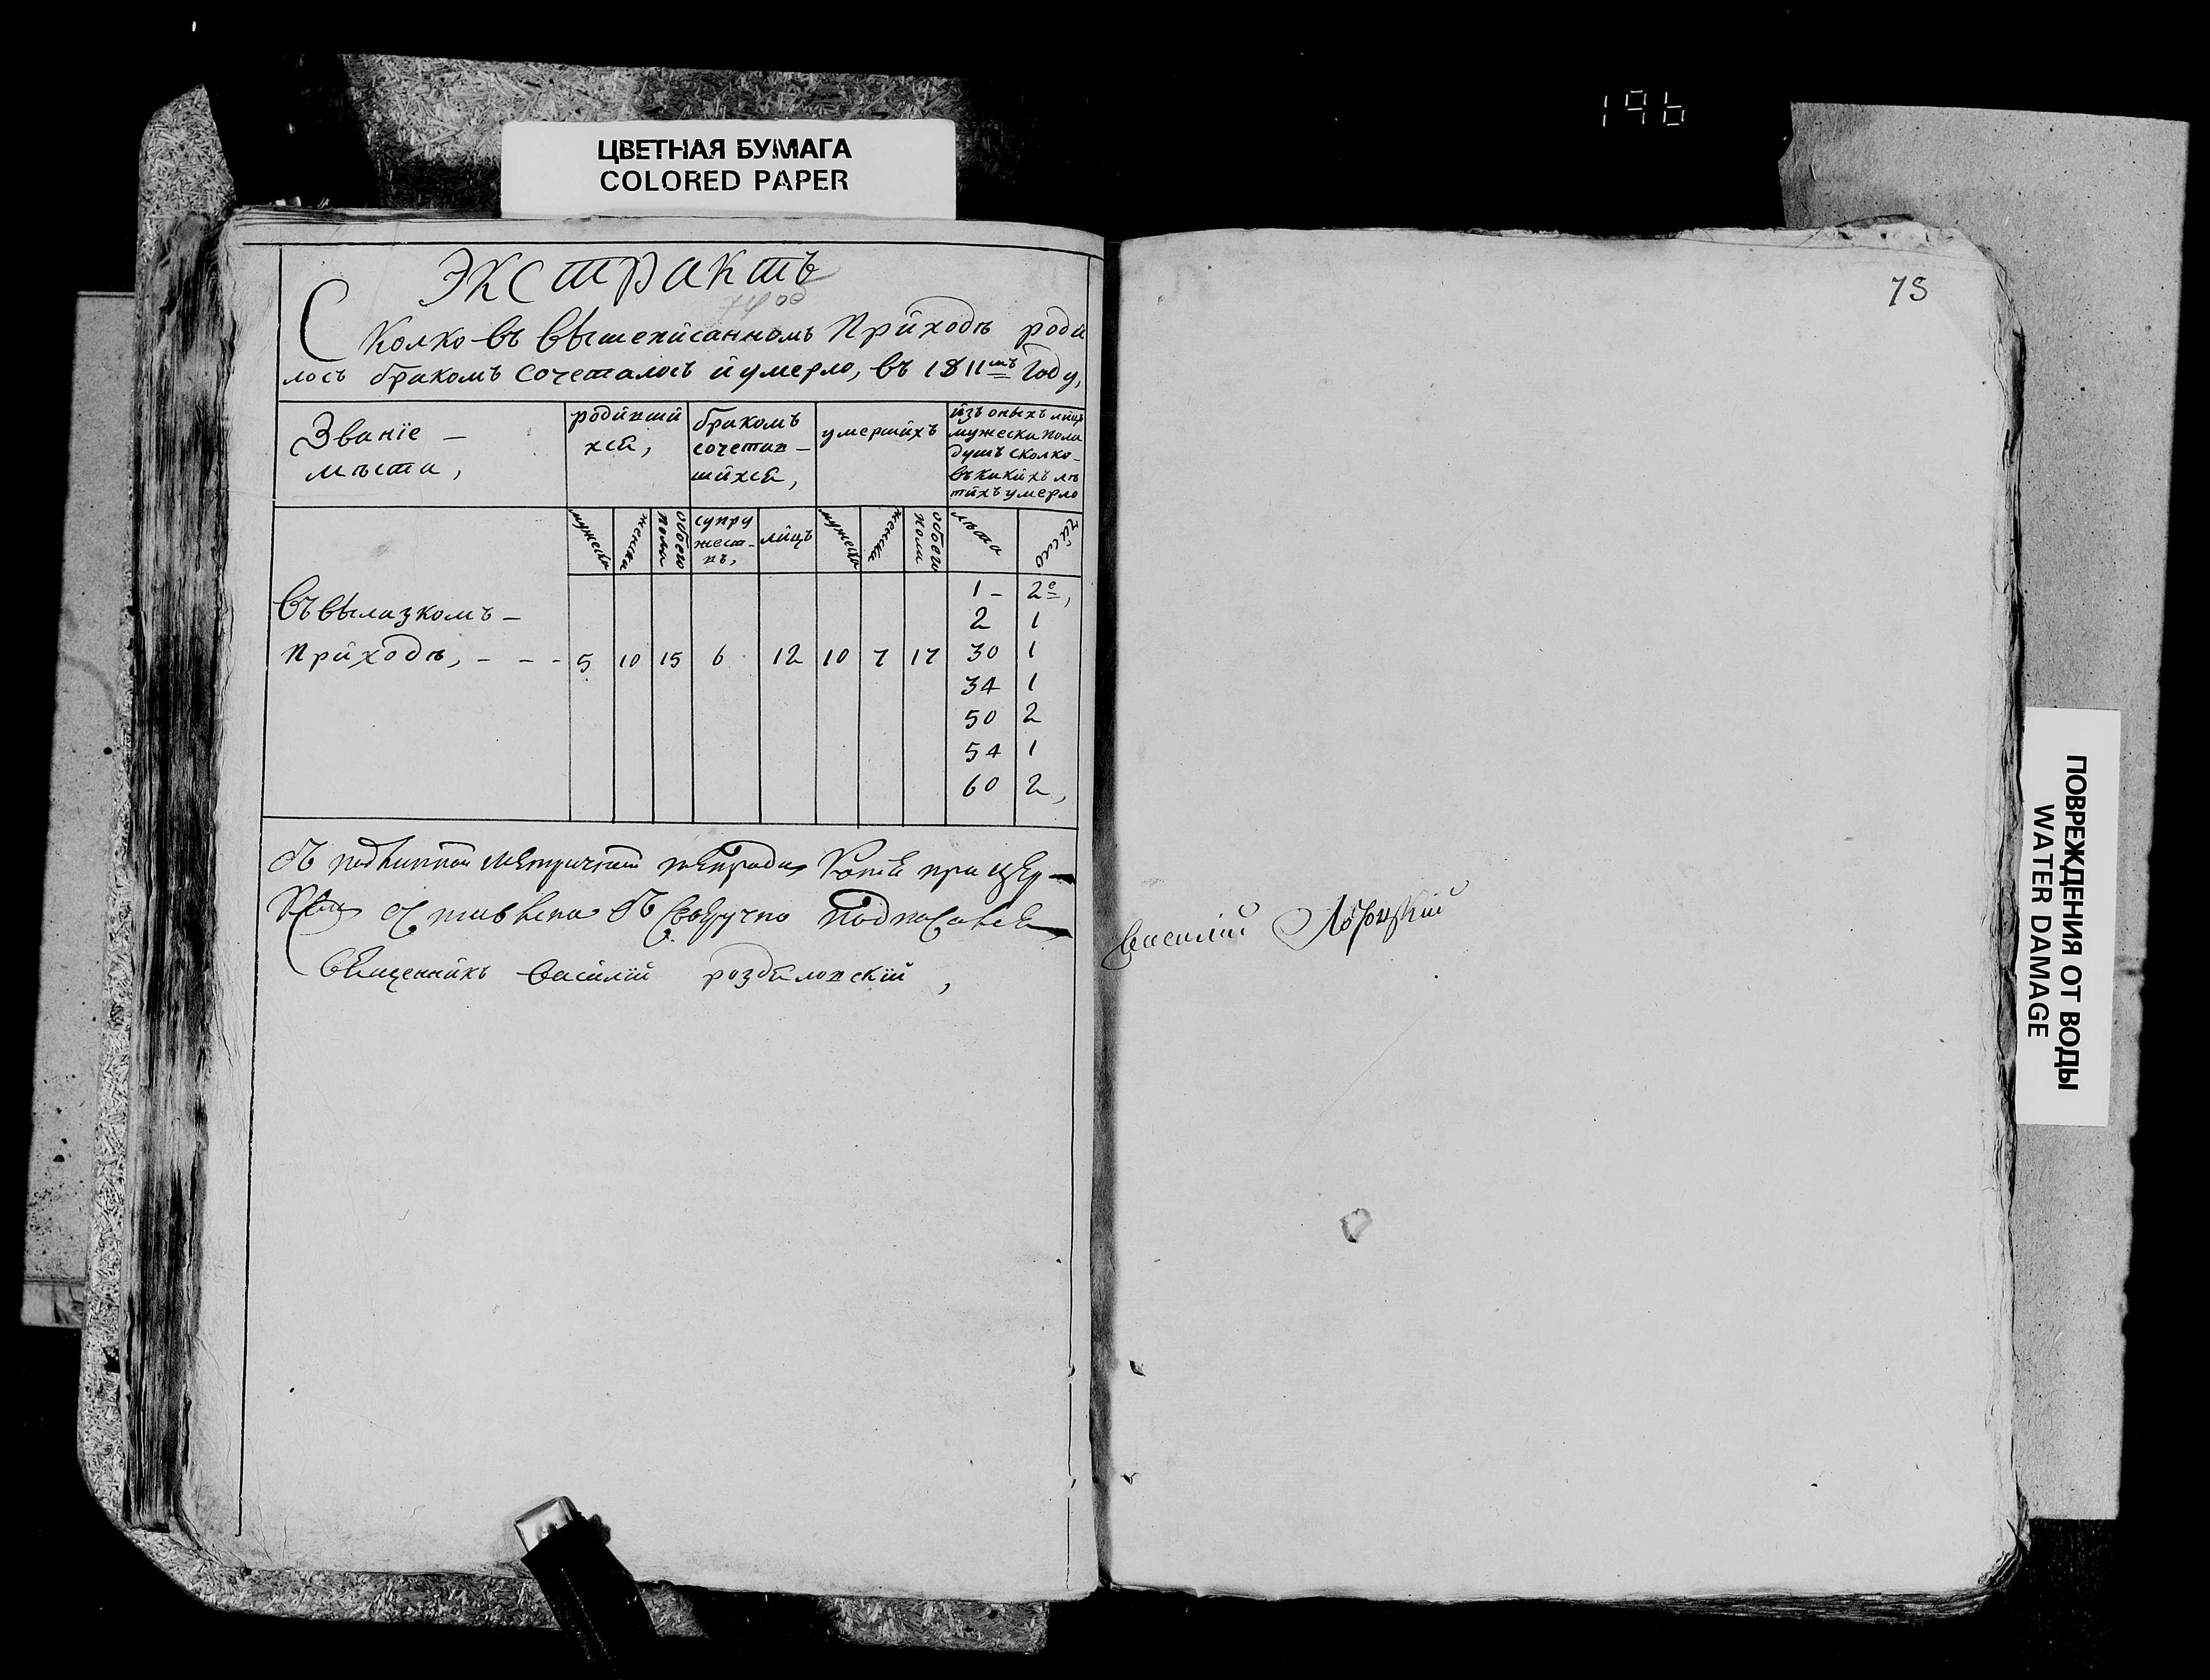 ЦВЕТНАЯ БУМАГА
COLORED PAPER
196
Экстрактъ
Сколко въ вышеписанномъ Приходѣ роди
лось бракомъ сочеталось и умерло, въ 1811мъ Году,
Званїе –
мѣста,
родивши
хся,
бракомъ
сочетав –
шихся,
умершихъ
изъ оныхъ лицъ
мужеска пола
душъ сколко –
въ какихъ лѣ
тахъ умерло
мужеска
женска
обоего
пола
супру
жест–
въ,
лицъ
мужеска
женска
обоего
пола
лѣта
число
Въ вылазкомъ –
Приходѣ, – – –
5 10 15 6 12 10 7 17
1 – 2е,
2 1
30 1
34 1
50 2
54 1
60 2,
подлинной метрической тетради при цер–
своеручно подписался
Священникъ Василїй роздяловскїй,
75
Василїй
ПОВРЕЖДЕНИЯ ОТ ВОДЫ
WATER DAMAGE